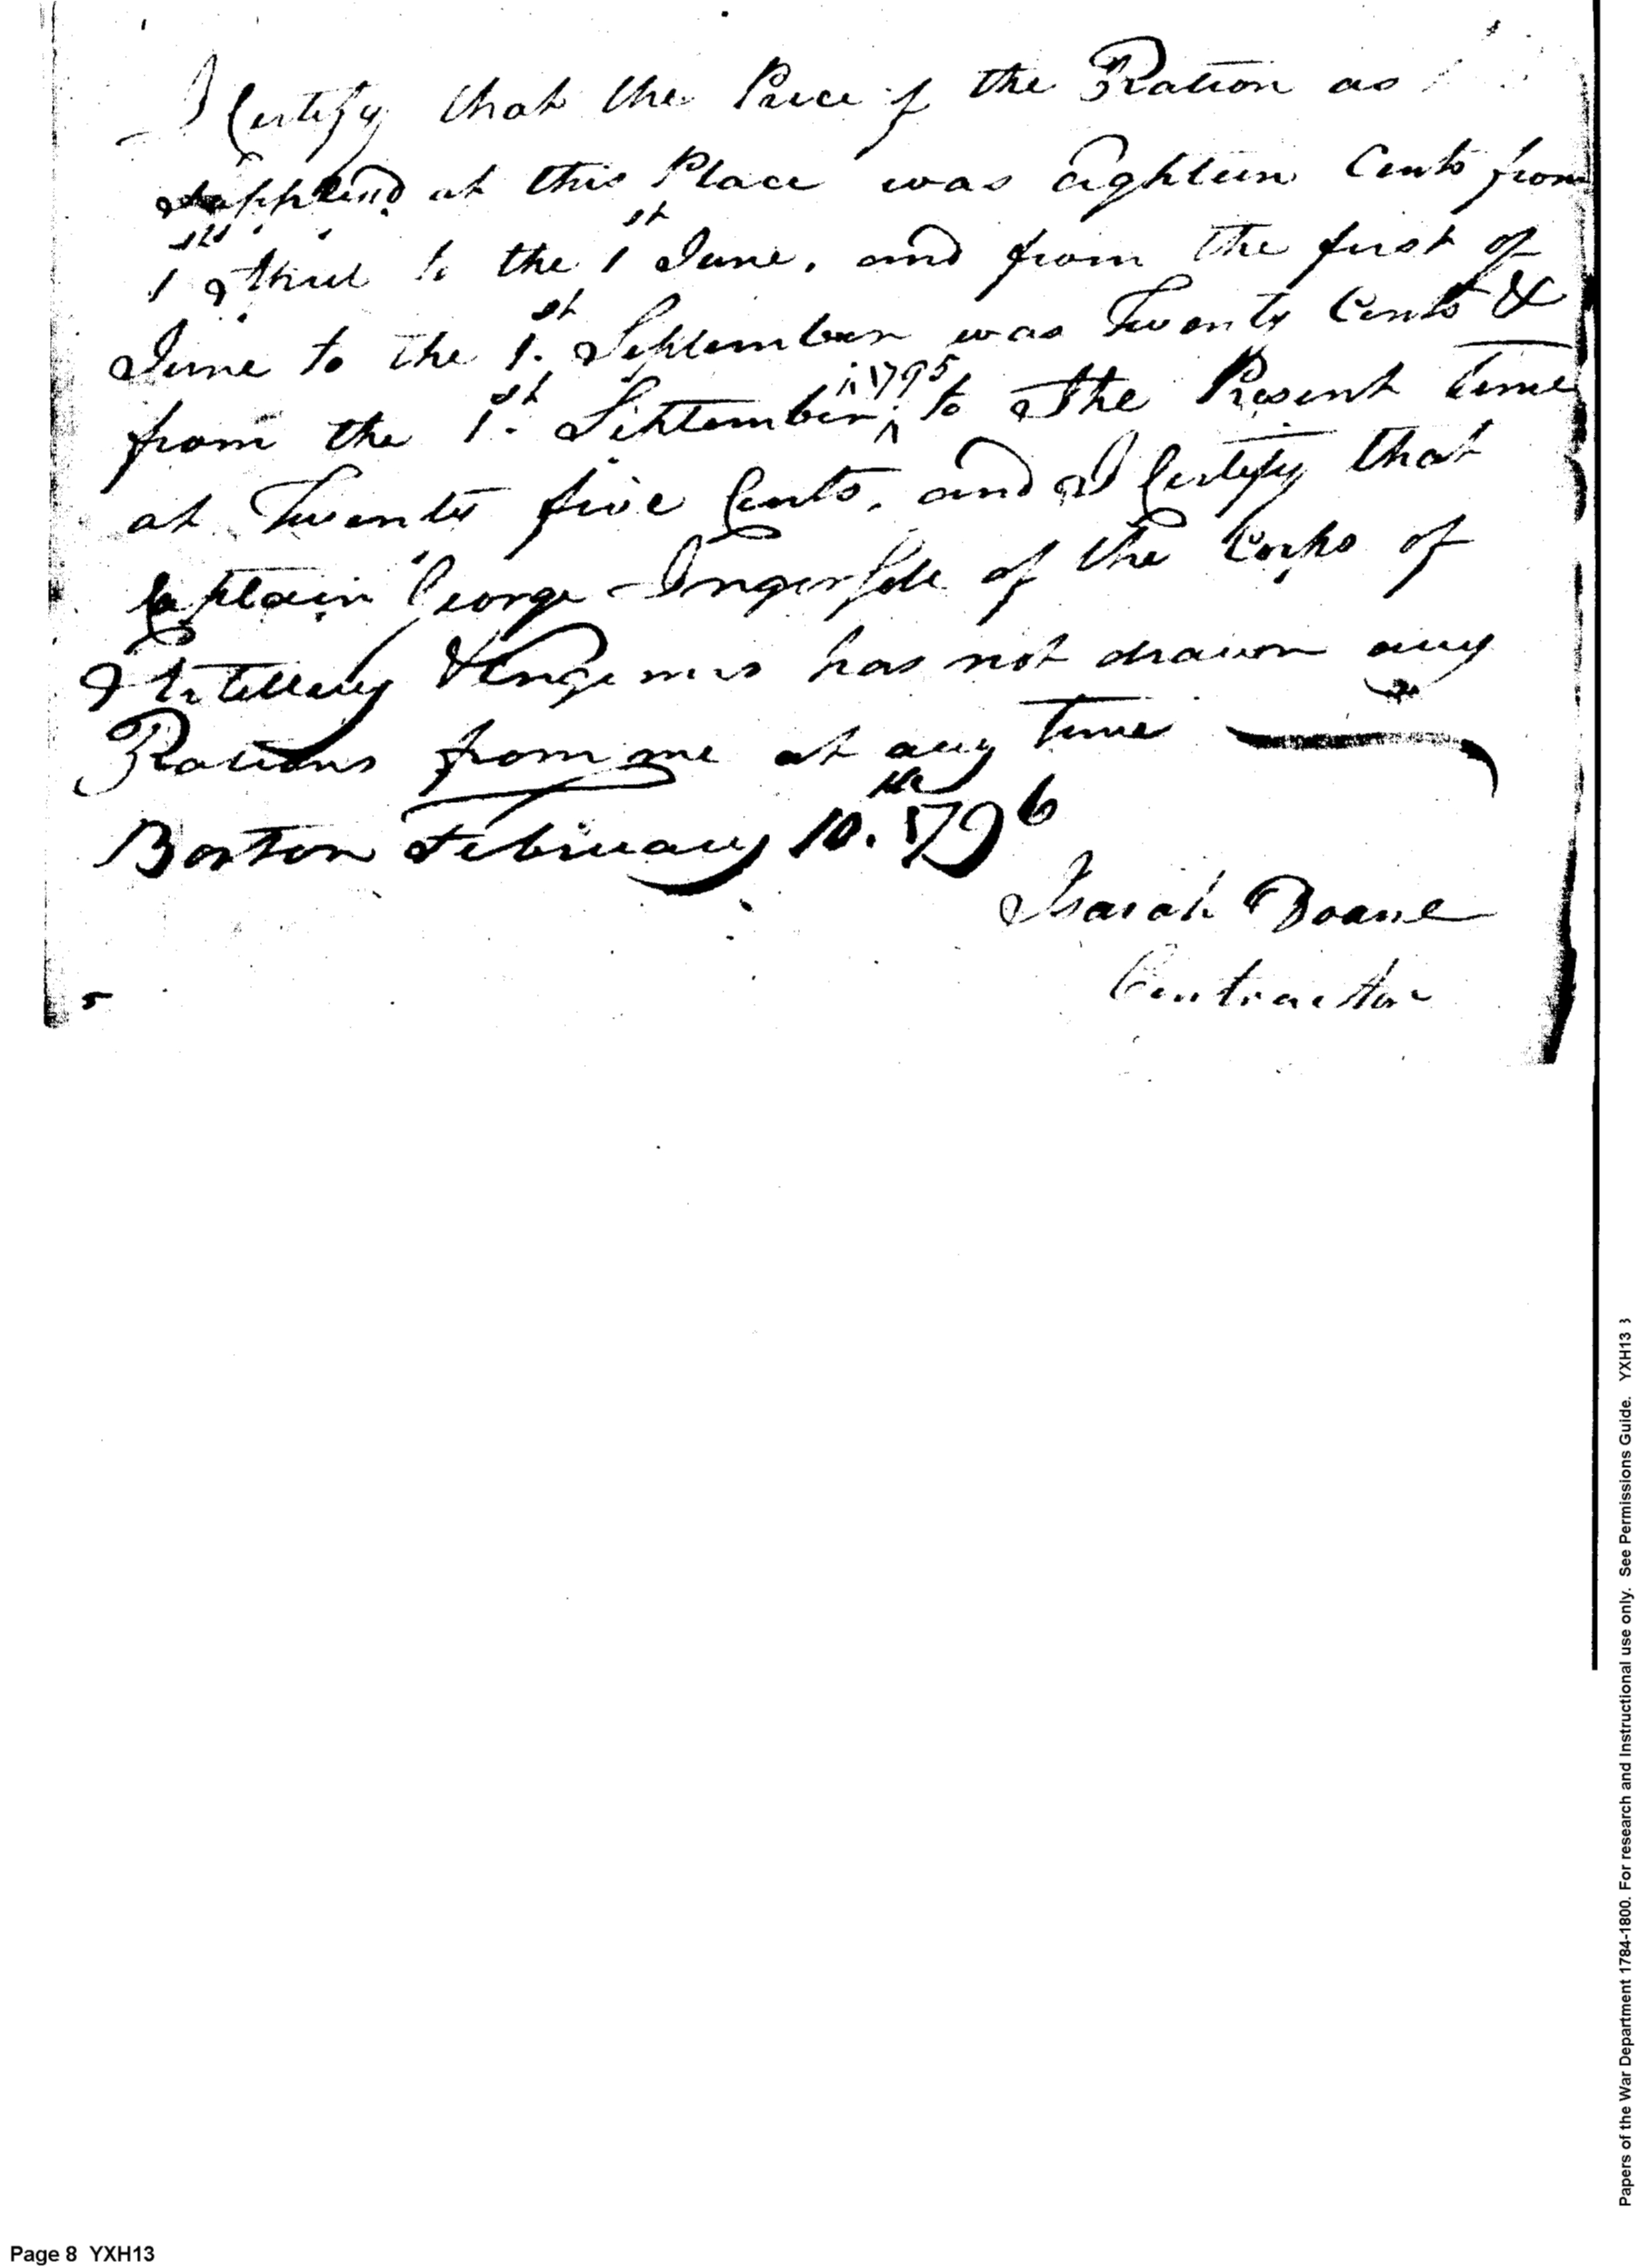 I Certify that the Price of the Ration as
Supplied at this Place was Eighteen Cents from
1st April to the 1st June, and from the first of
June to the 1st September was Twenty Cents &
from the 1st September, in 1795 to The Present Time
at Twenty five Cents, and I Certify that
Captain George Ingersole of the Corps of
Artillery & Engeniers has not drawn any
Rations from me at any Time
Boston February 10th 1796
Isaiah Doane
Contractor
5
Papers of the War Department 1784-1800. For research and Instructional use only. See Permissions Guide. YXH13
Page 8 YXH13